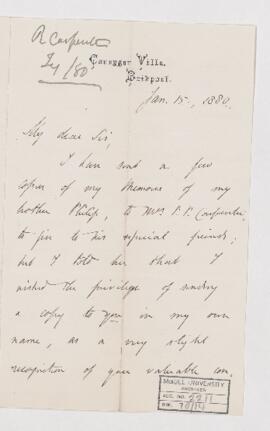 R Carpenter
Jy/80
Caregger Villa,
Bridport.
Jan. 15, 1880.
My dear Sir,
I have sent a few
copies of my Memoirs of my
brother Philip, to Mrs P. P. Carpenter
to give to his special friends;
but I told her that I
wished the privilege of sending
a copy to you in my own
name, as a very slight
recognition of your valuable con
MCGILL UNIVERSITY
ARCHIVES
ACC. NO. 2211
REF.